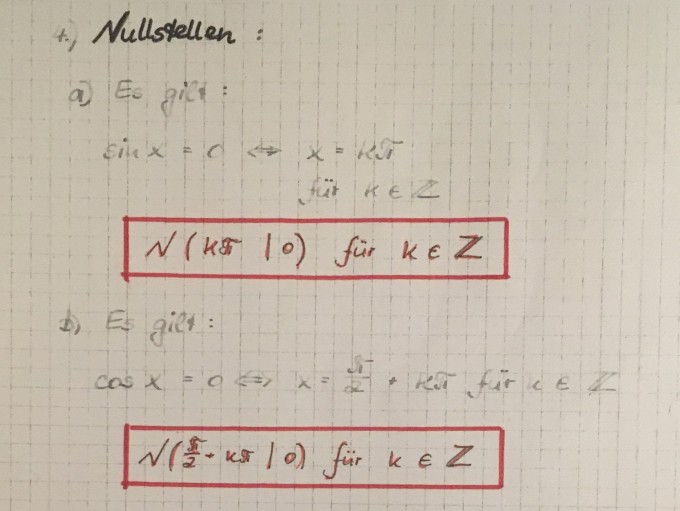 4.) Nullstellen :
a) Es gilt :
sin x = 0 ⇔ x = kπ
für k ∈ ℤ
N ( kπ | 0 ) für k ∈ ℤ
b) Es gilt :
cos x = 0 ⇔ x = π/2 + kπ für k ∈ ℤ
N ( π/2 + kπ | 0 ) für k ∈ ℤ